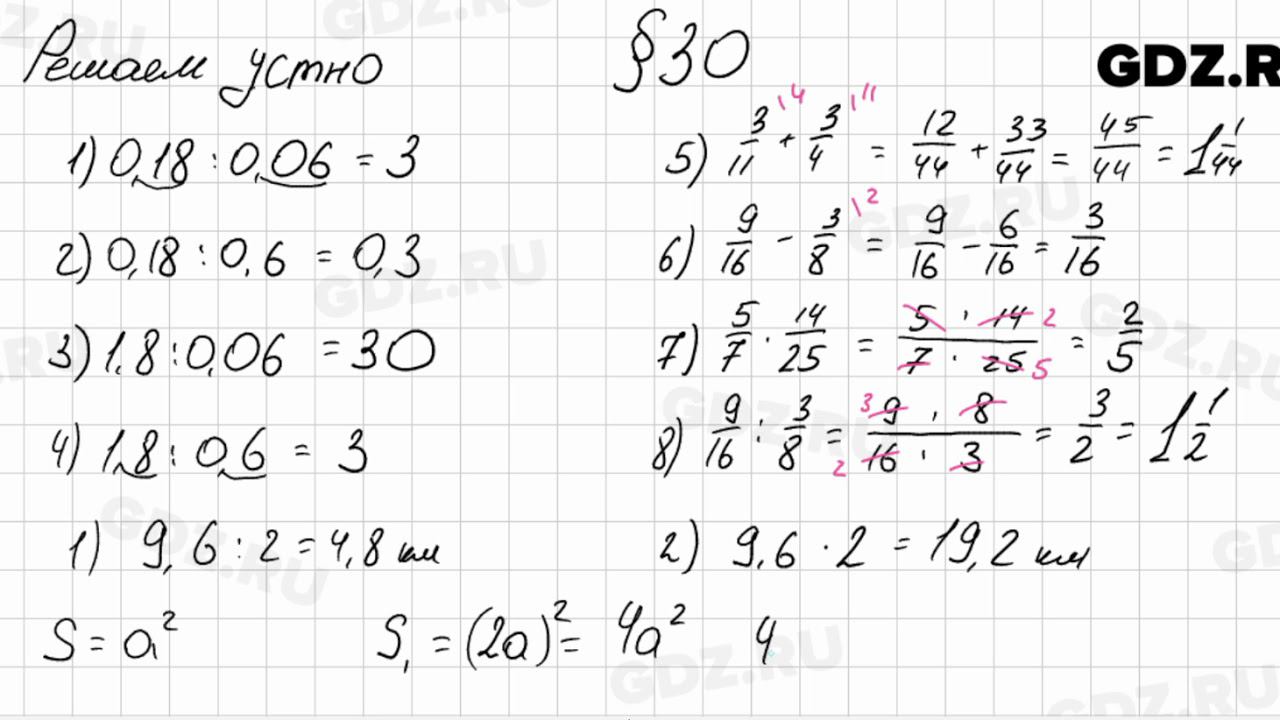 Решаем устно
§30
GDZ.R
1) 0,18 : 0,06 = 3
2) 0,18 : 0,6 = 0,3
3) 1,8 : 0,06 = 30
4) 1,8 : 0,6 = 3
5) 3/11 \4 + 3/4 \11 = 12/44 + 33/44 = 45/44 = 1 1/44
6) 9/16 - 3/8 \2 = 9/16 - 6/16 = 3/16
7) 5/7 · 14/25 = 5 · 14 2 / 7 · 25 5 = 2/5
8) 9/16 : 3/8 = 3 9 · 8 / 2 16 · 3 = 3/2 = 1 1/2
1) 9,6 : 2 = 4,8 км
2) 9,6 · 2 = 19,2 км
S = a² S₁ = (2a)² = 4a² 4
GDZ.RU